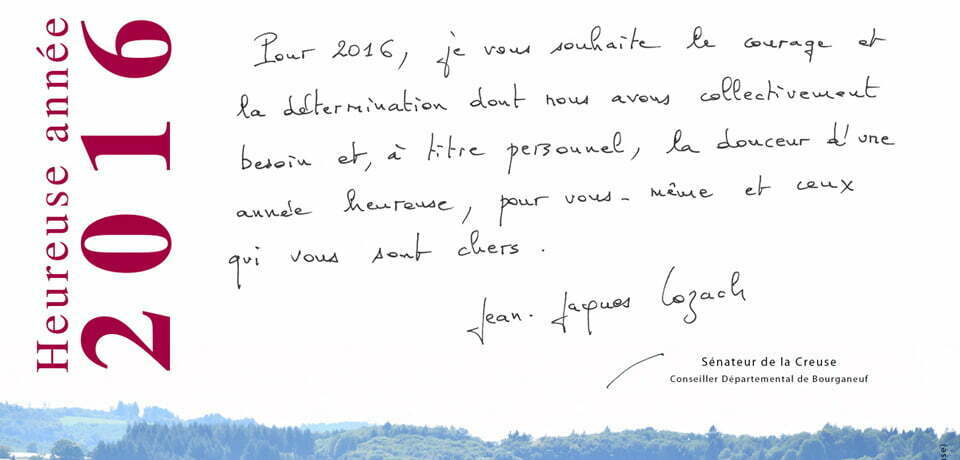 Heureuse année
2016
Pour 2016, je vous souhaite le courage et
la détermination dont nous avons collectivement
besoin et, à titre personnel, la douceur d'une
année heureuse, pour vous-même et ceux
qui vous sont chers.
Jean-Jacques Lozach
Sénateur de la Creuse
Conseiller Départemental de Bourganeuf